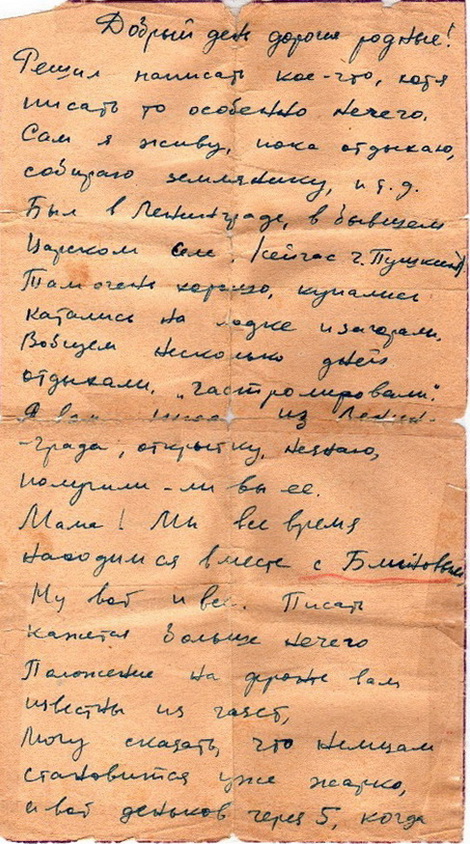 Добрый день дорогие родные!
Решил написать кое-что, хотя
писать то особенно нечего.
Сам я живу, пока отдыхаю,
собираю землянику, и т.д.
Был в Ленинграде, в бывшем
Царском селе. (сейчас г. Пушкин)
Там очень хорошо, купались
катались на лодке и загорали.
Вобщем несколько дней
отдыхали, "гастролировали".
Я вам писал из Ленин-
-града, открытку, незнаю,
получили-ли вы ее.
Мама! Мы все время
находимся вместе с Блиновым,
Ну вот и все. Писать
кажется больше нечего
Положение на фронте вам
известны из газет,
Могу сказать, что немцам
становится уже жарко,
и вот деньков через 5, когда